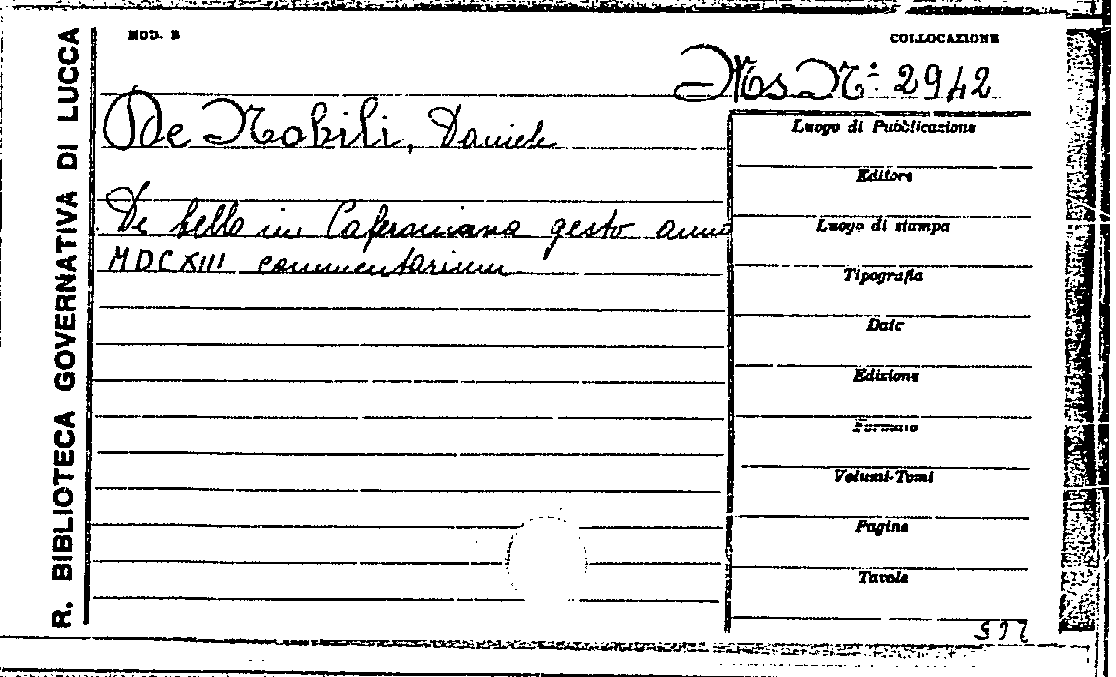 MOD. B
COLLOCAZIONE
Ms. N.: 2942
R. BIBLIOTECA GOVERNATIVA DI LUCCA
De Nobili, Daniele
De bello in Caferoniana gesto anno
MDCXIII commentarium
Luogo di Pubblicazione
Editore
Luogo di stampa
Tipografia
Date
Edizione
Formato
Volumi-Tomi
Pagine
Tavole